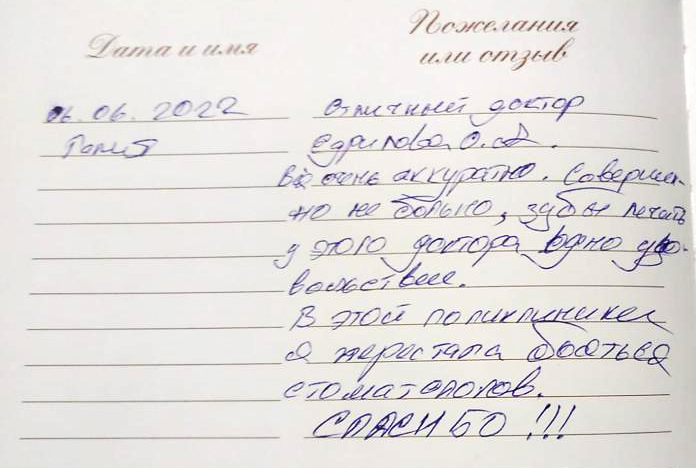 Дата и имя
Пожелания
или отзыв
06.06.2022
Галия
Отличный доктор
О.А.
Всё очень аккуратно. Совершен-
но не больно, зубы лечить
у этого доктора одно удо-
вольствие.
В этой поликлинике
я перестала бояться
стоматологов.
СПАСИБО !!!